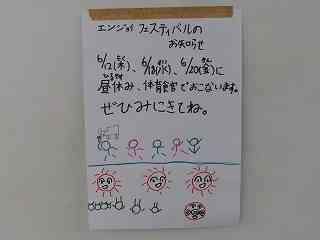 エンジョイ フェスティバルの
お知らせ
6/12(木)、6/18(水)、6/20(金)に
昼休み、体育館でおこないます。
ぜひみにきてね。